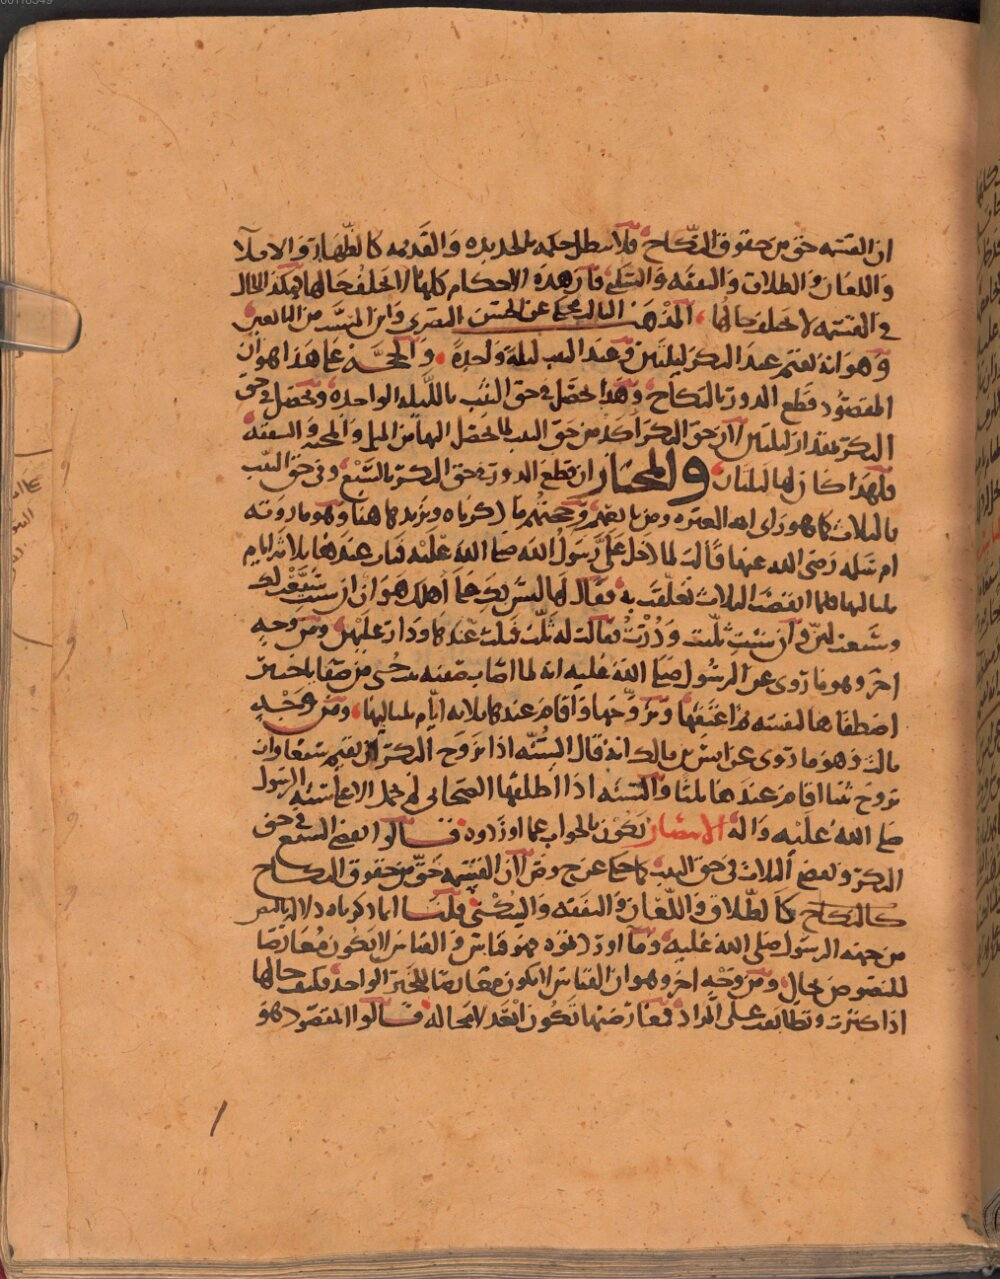 ان القسمه حق من حقوق النكاح فلا يبطل حكمه بالجديده والقديمه كالظهار والايلا
واللعان والطلاق والنفقه والسكنى فان هذه الاحكام كلها لا تختلف حالها فهكذا الحال
في القسمه لا تختلف حالها المذهب الثالث محكي عن الحسن البصري وابن المسيب من التابعين
وهو انه يقيم عند البكر ليلتين وعند الثيب ليلة واحدة والحجة على هذا هو ان
المقصود قطع الدور بالنكاح وهذا يحصل في حق الثيب بالليله الواحده ويحصل في حق
البكر بمقدار ليلتين لان حق البكر اكد من حق الثيب لما يحصل اليها من الميل والمحبة
فلهذا كان لها ليلتان والمختار ان قطع الدور في حق البكر بالسبع وفي حق الثيب
بالثلاث كما هو راي ايمه العتره ومن تابعهم وحجتهم ما ذكرناه ونزيد هاهنا وهو ما روته
ام سلمه رضى الله عنها قالت لما دخل علي رسول الله صلى الله عليه فبات عندها ثلاثه ايام
بلياليها فلما انقضت الثلاث تعلقت به فقال لها ليس بك على اهلك هوان ان شيت سبعت لك
وسبعت لهن وان شيت ثلثت ودرت فقالت له ثلث فلبث عندها ودار عليهن ومن وجه
اخر وهو ما روى عن الرسول صلى الله عليه انه لما اصاب صفيه بنت حيي من صفايا خيبر
اصطفاها لنفسه ثم اعتقها وتزوجها واقام عندها ثلاثه ايام بلياليها ومن وجه
ثالث وهو ما روى عن انس بن مالك انه قال السنه اذا تزوج البكر ان يقيم سبعا وان
تزوج ثيبا اقام عندها ثلثا والسنه اذا اطلقها الصحابي لم تحمل الا على سنه الرسول
صلى الله عليه واله الانتصار يكون بالجواب عما اوردوه قالوا يقضي السبع في حق
البكر ويقضي الثلاث في حق الثيب كما حكي عن ح وص لان القسمه حق من حقوق النكاح
كالنكاح كالطلاق واللعان والنفقه والسكنى قلنا انا ذكرناه دلاله النص
من جهه الرسول صلى الله عليه وما اوردتموه فهو قياس والقياس لا يكون معارضا
للنصوص بحال ومن وجه اخر وهو ان القياس لا يكون معارضا للخبر الواحد فكيف حالها
اذا كثرت وتطابقت على المراد فمعارضتها تكون ابعد لا محاله قالوا المقصود هو